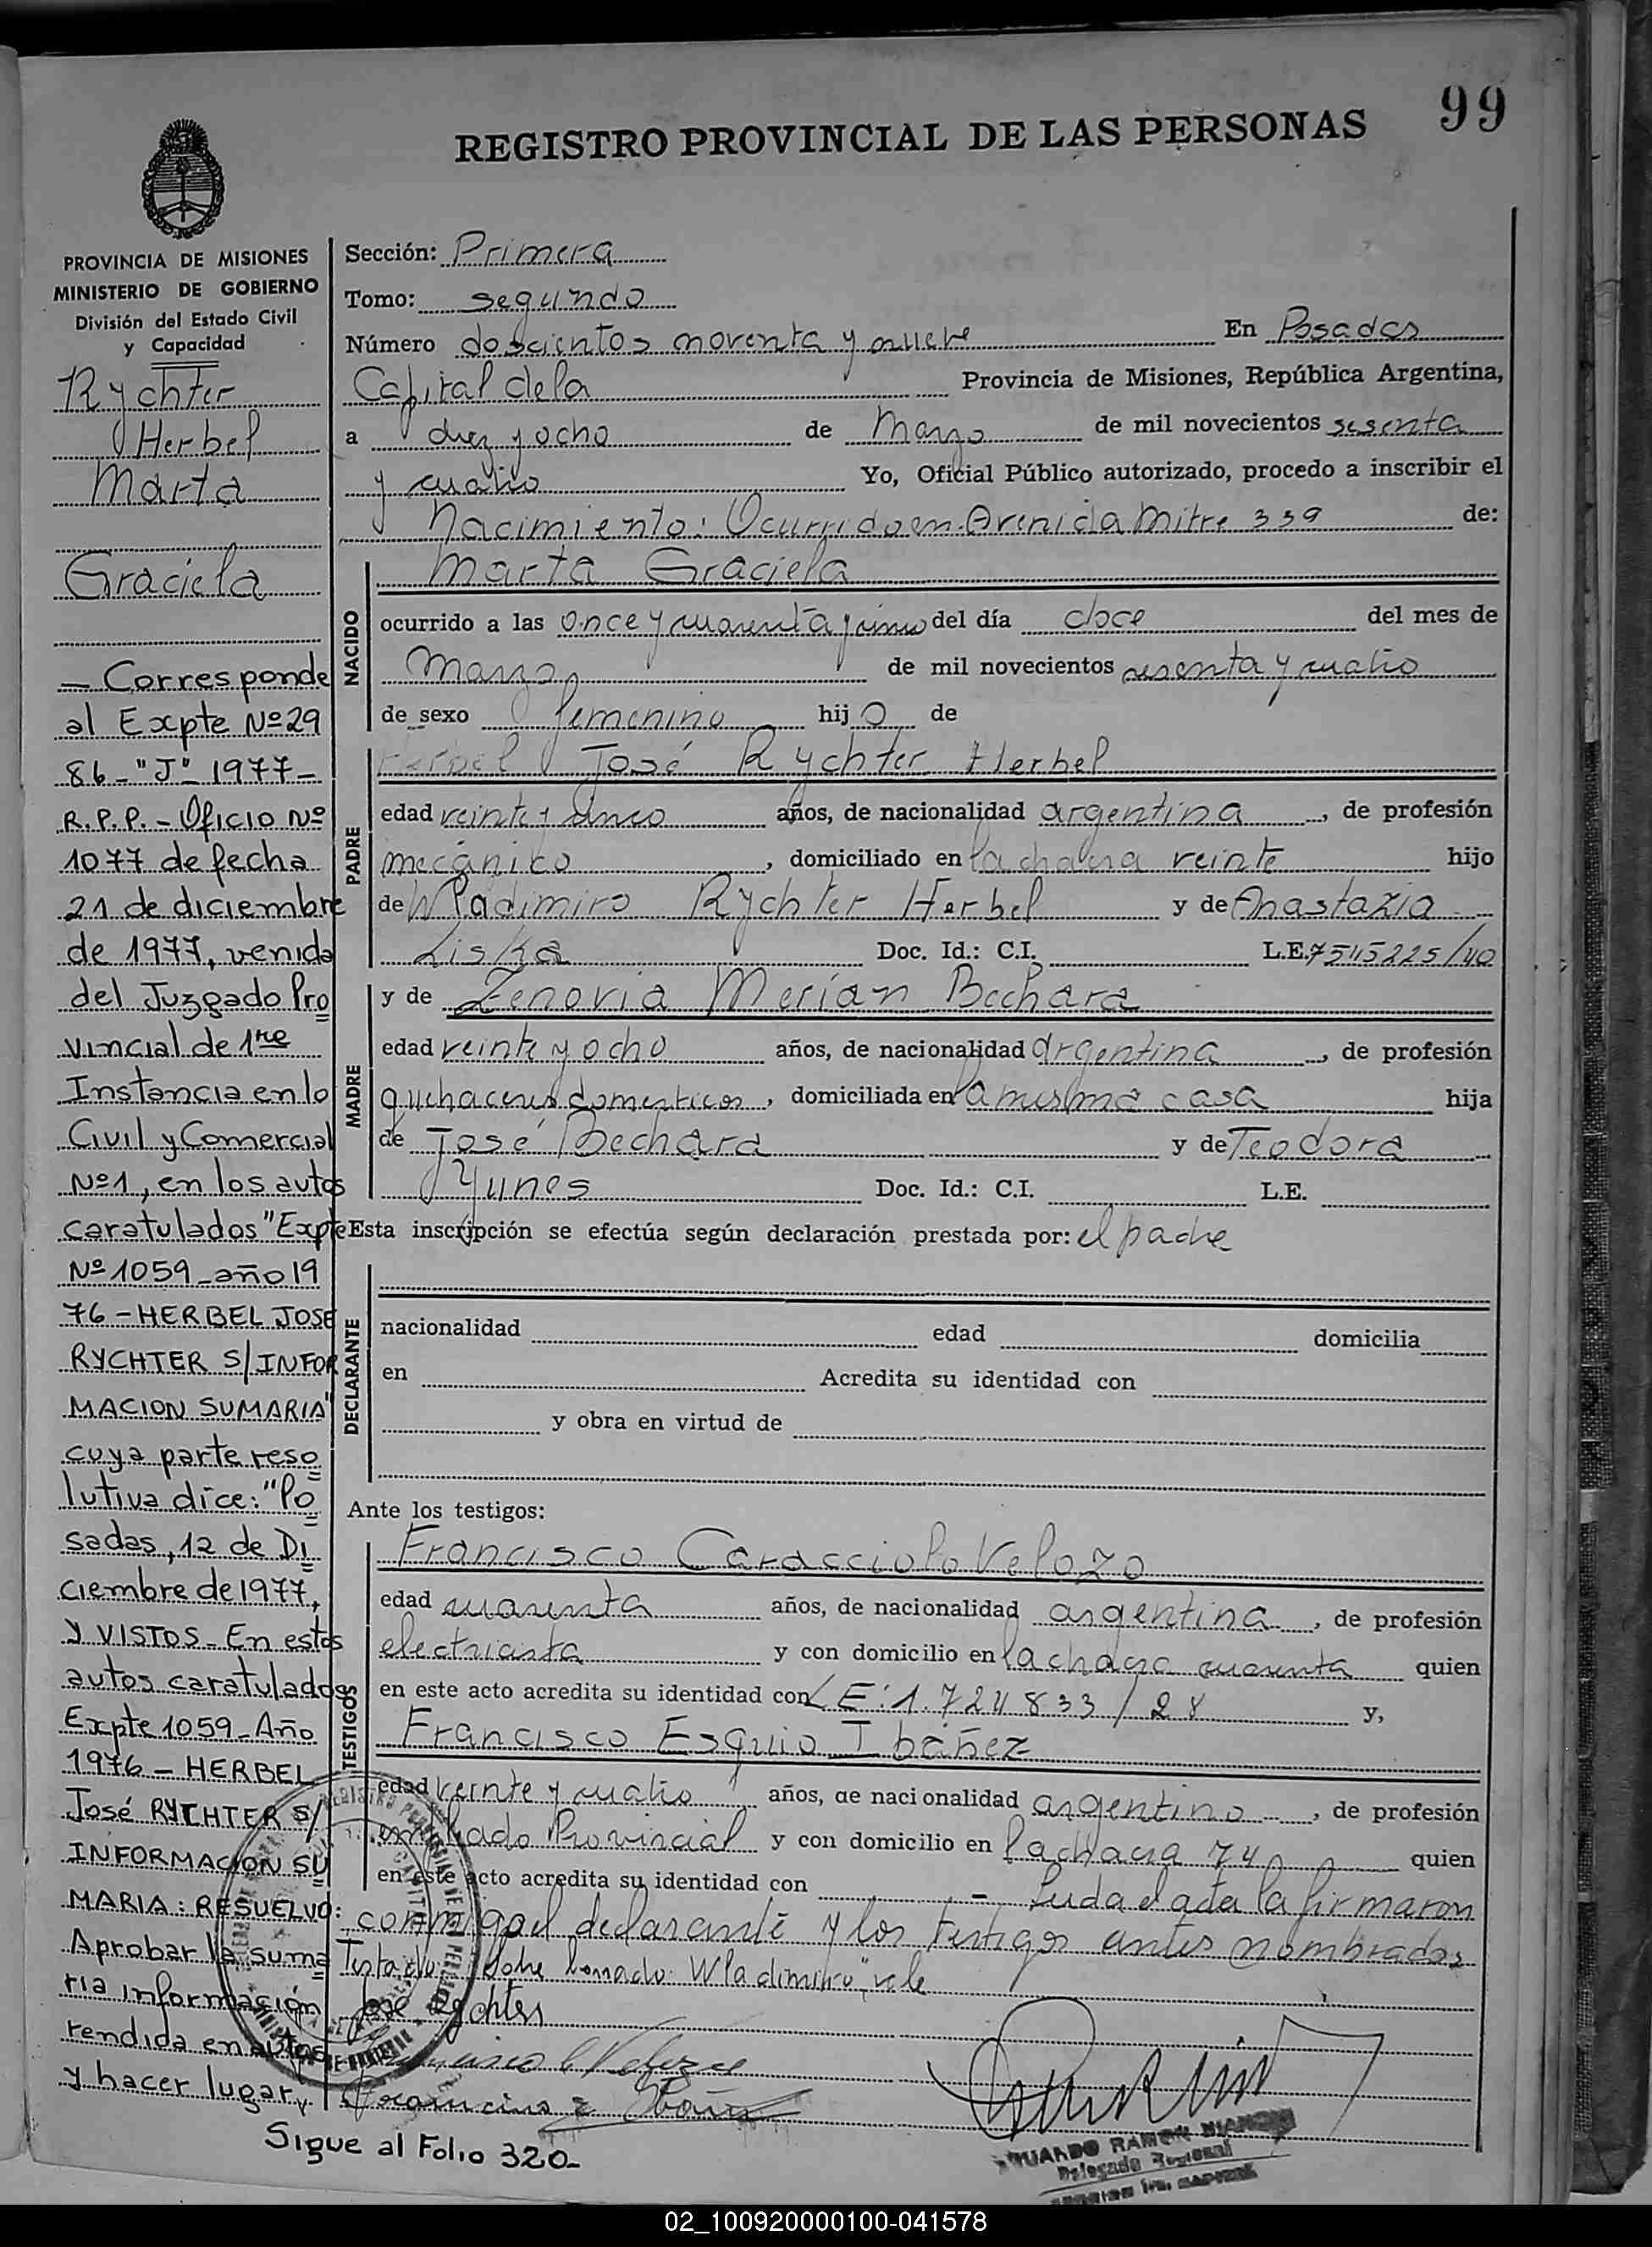 99
REGISTRO PROVINCIAL DE LAS PERSONAS
PROVINCIA DE MISIONES
MINISTERIO DE GOBIERNO
División del Estado Civil
y Capacidad
Rychter
Herbel
Marta
Graciela
— Corresponde
al Expte Nº 29
86-"J"-1977-
R.P.P.- Oficio Nº
1077 de fecha
21 de diciembre
de 1977, venida
del Juzgado Pro
vincial de 1ra
Instancia en lo
Civil y Comercial
Nº1, en los autos
caratulados "Expte
Nº 1059-año 19
76-HERBEL JOSE
RYCHTER S/INFOR
MACION SUMARIA"
cuya parte reso
lutiva dice: "Po
sadas, 12 de Di
ciembre de 1977,
Y VISTOS-En estos
autos caratulados
Expte 1059-Año
1976-HERBEL
José RYCHTER S/
INFORMACION SU
MARIA: RESUELVO:
Aprobar la suma
ria información
rendida en autos
y hacer lugar,
Sigue al Folio 320-
Sección: Primera
Tomo: segundo
Número doscientos noventa y nueve En Posadas
Capital de la Provincia de Misiones, República Argentina,
a diez y ocho de Marzo de mil novecientos sesenta
y cuatro Yo, Oficial Público autorizado, procedo a inscribir el
Nacimiento: Ocurrido en Avenida Mitre 339 de:
Marta Graciela
NACIDO
ocurrido a las once y cuarenta y cinco del día doce del mes de
Marzo de mil novecientos sesenta y cuatro
de sexo femenino hijo de
PADRE
Herbel José Rychter Herbel
edad veinte y cinco años, de nacionalidad argentina, de profesión
mecánico, domiciliado en la chacra veinte hijo
de Wladimiro Rychter Herbel y de Anastazia
Liska Doc. Id.: C.I. L.E. 7545225/40
MADRE
y de Zenovia Merian Bechara
edad veinte y ocho años, de nacionalidad argentina, de profesión
quehaceres domesticos, domiciliada en la misma casa hija
de José Bechara y de Teodora
Yunes Doc. Id.: C.I. L.E.
Esta inscripción se efectúa según declaración prestada por: el padre
DECLARANTE
nacionalidad edad domicilia
en Acredita su identidad con
y obra en virtud de
Ante los testigos:
TESTIGOS
Francisco Caracciolo Velozo
edad cuarenta años, de nacionalidad argentina, de profesión
electricista y con domicilio en la chacra cuarenta quien
en este acto acredita su identidad con L E: 1.724833/28 y,
Francisco Esquio Ibáñez
edad veinte y cuatro años, de nacionalidad argentino, de profesión
empleado Provincial y con domicilio en la chacra 74 quien
en este acto acredita su identidad con - Leida el acta la firmaron
conmigo el declarante y los testigos antes nombrados
Testado: Sobre borrado: Wladimiro, vale
José Rychter
Francisco C Velozo
Francisco E Ibáñez
EDUARDO RAMON BIANCHI
Delegado Regional
02_100920000100-041578